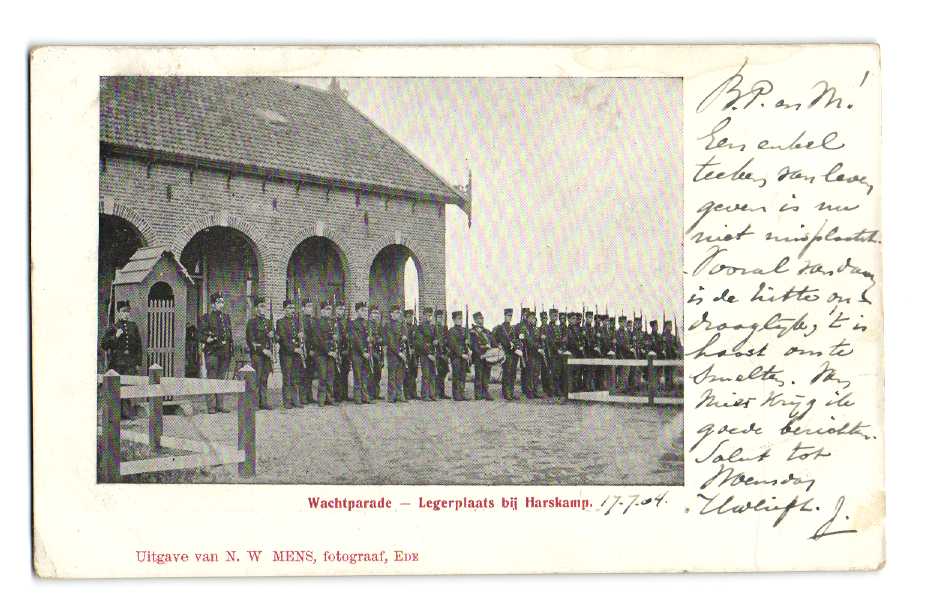 B.P. en M.!
Een enkel
teeken van leven
geven is nu
niet misplaatst.
Vooral vandaag
is de hitte on-
draaglijk, 't is
haast om te
smelten. Van
Mies krijg ik
goede berichten.
Salut tot
Woensdag
J.
Wachtparade — Legerplaats bij Harskamp. 17.7.04.
Uitgave van N. W MENS, fotograaf, EDE